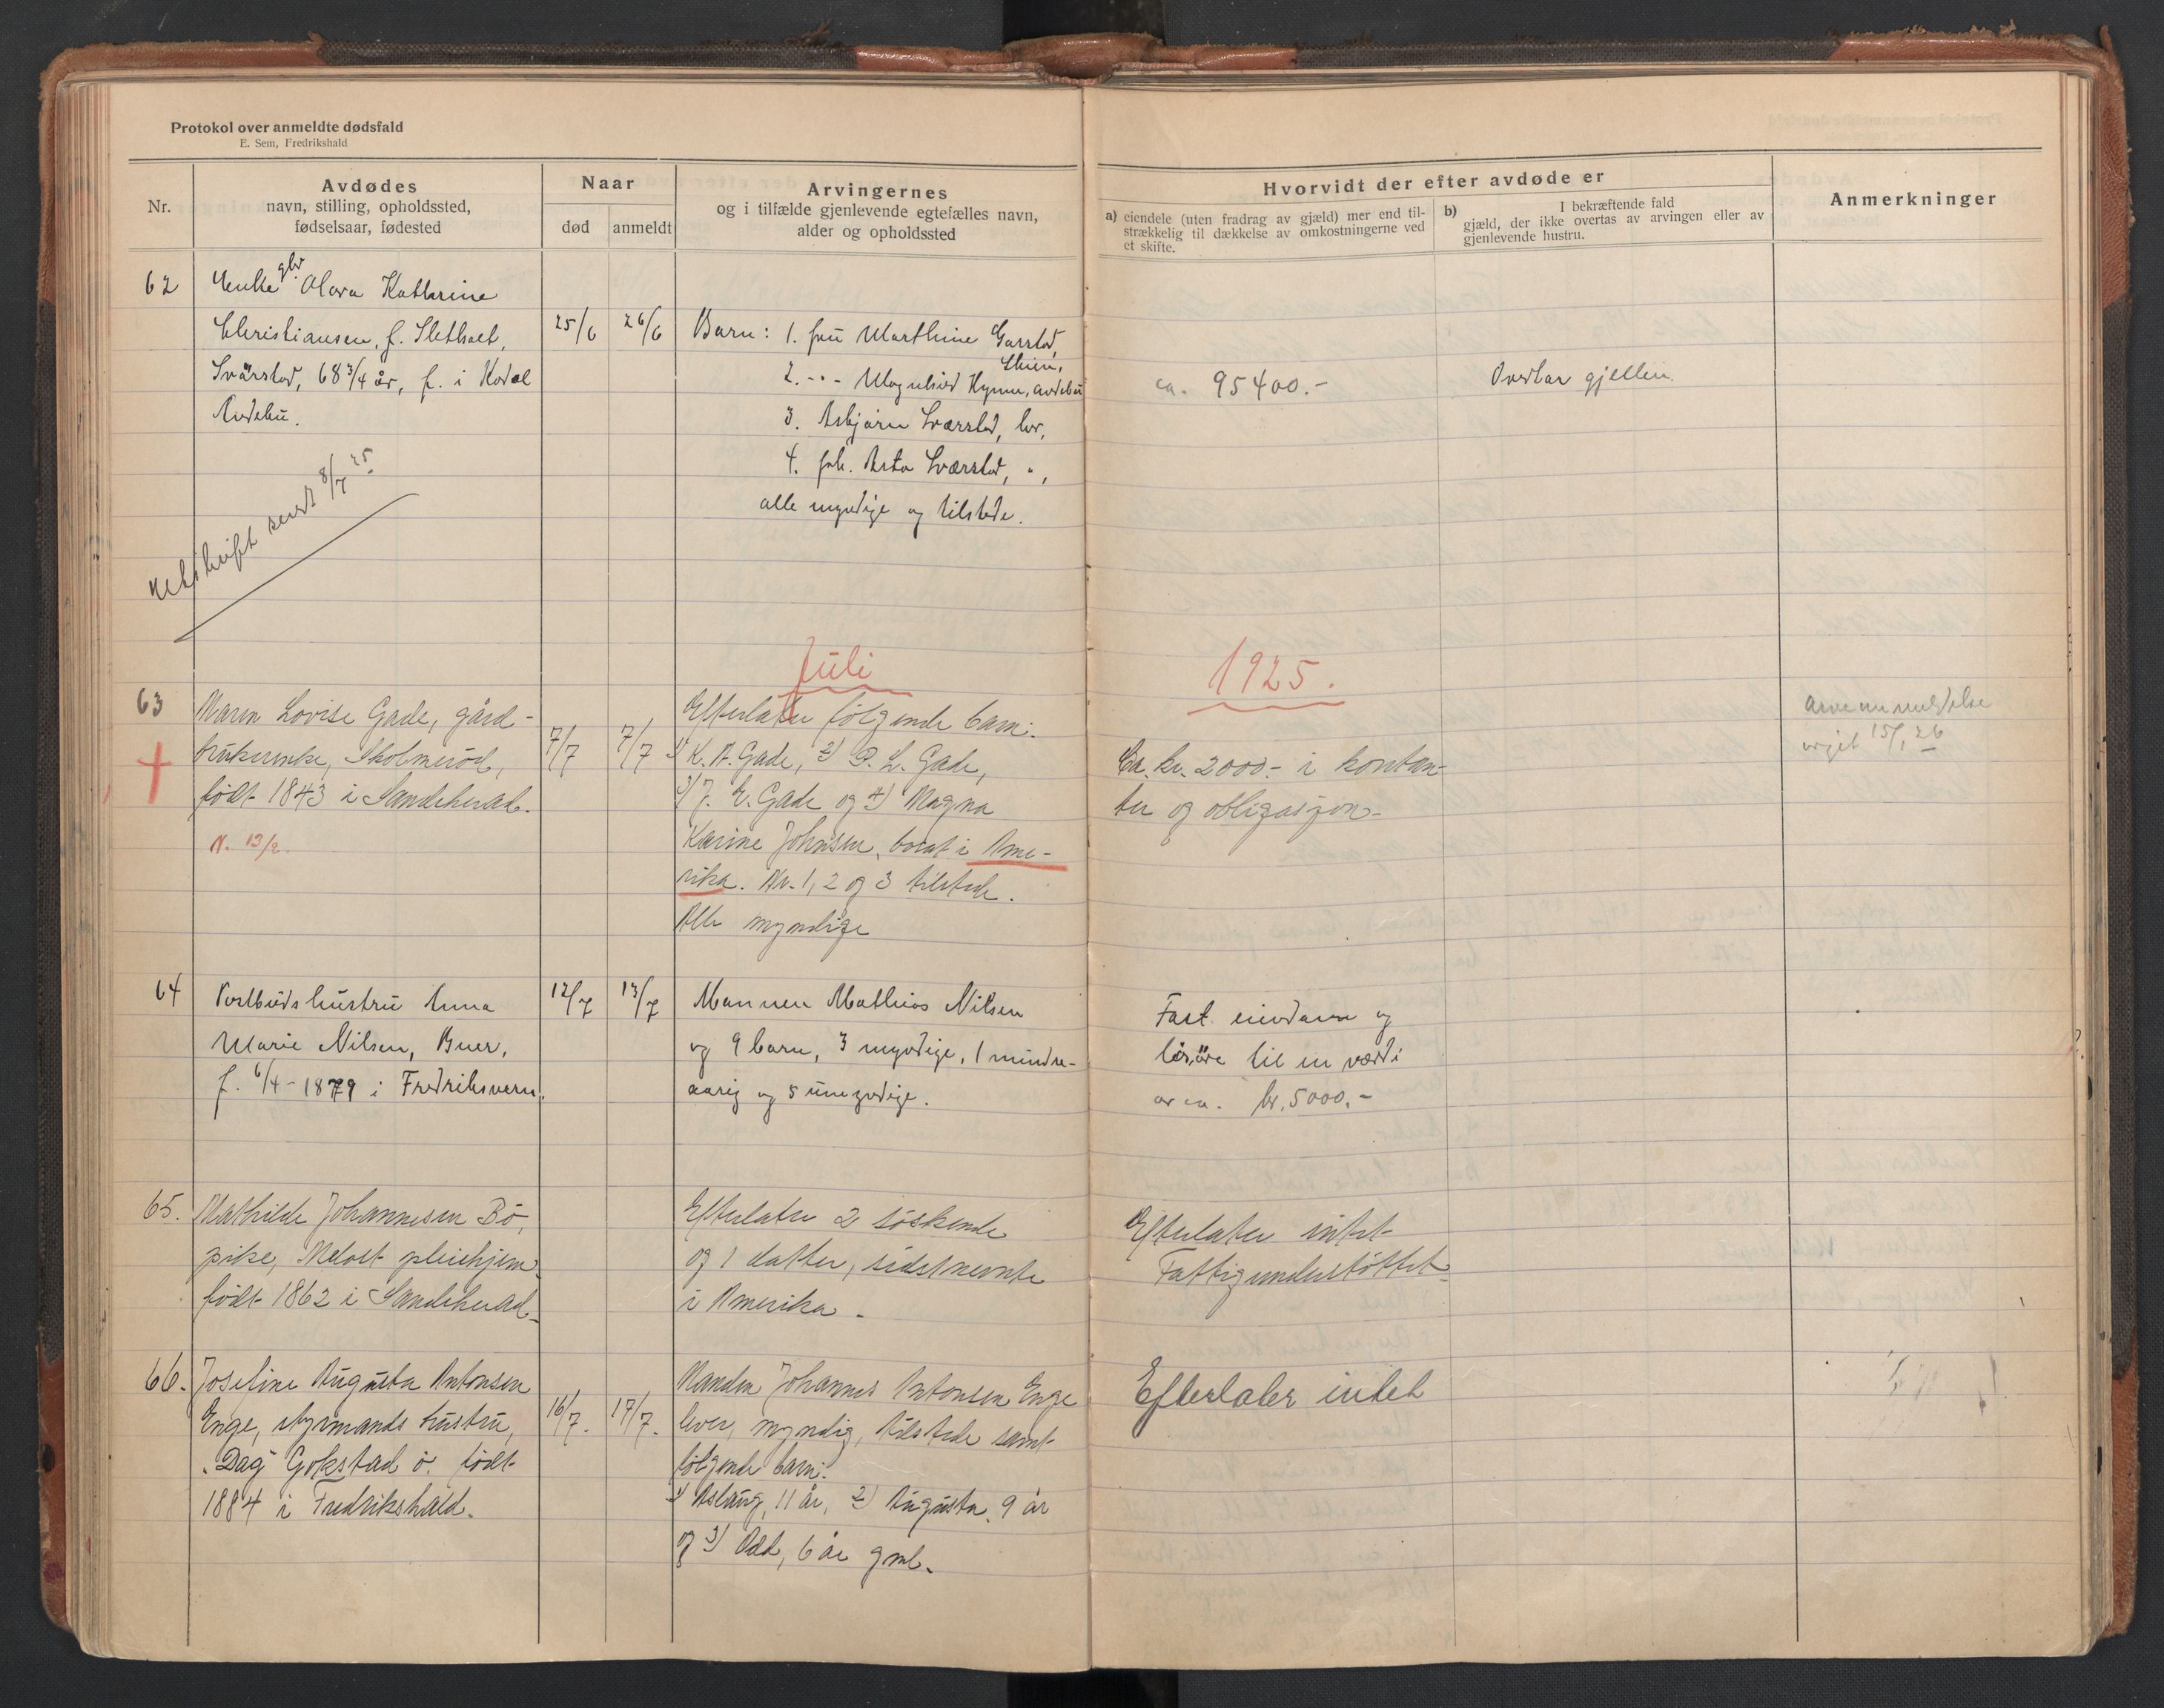 Protokol over anmeldte dødsfald
E. Sem, Fredrikshald
Nr.
Avdødes
navn, stilling, opholdssted,
fødselsaar, fødested
Naar
død
anmeldt
Arvingernes
og i tilfælde gjenlevende egtefælles navn,
alder og opholdssted
Hvorvidt der efter avdøde er
a) eiendele (uten fradrag av gjæld) mer end til-
strækkelig til dækkelse av omkostningerne ved
et skifte.
b) I bekræftende fald
gjæld, der ikke overtas av arvingen eller av
gjenlevende hustru.
Anmerkninger
62
Enke Olava Kathrine
Christiansen, f. Sletholt,
Svärstad, 68 3/4 år, f. i Kodal
Andebu.
25/6
26/6
Barn: 1. fru Marthine
Skien,
2. -"- Magnhild Hynne, Andebu
3. Asbjørn Sværstad, her,
4. frk. Asta Sværstad, ",
alle myndige og tilstede.
ca. 95400.-
Overtar gjelden.
sendt 8/7 25
Juli
1925.
63
Maren Lovise Gade, gård-
brukerenke, Skolmeröd,
født 1843 i Sandeherad.
N. 13/2.
7/7
7/7
Efterlater følgende barn:
1) K. A. Gade, 2) P. L. Gade,
3) J. E. Gade og 4) Magna
Karine Johnsen, bosat i Ame-
rika. Nr. 1, 2 og 3 tilstede.
Alle myndige
Ca. kr. 2000.- i kontan-
ter og obligasjon-
arveanmeldelse
15/1 26
64
Postbuds hustru Anna
Marie Nilsen, Buer,
f. 6/4-1879 i Fredriksvern.
12/7
13/7
Mannen Mathias Nilsen
og 9 barn, 3 myndige, 1 mindre-
aarig og 5 umyndige.
Fast eiendom og
lösöre til en værdi
av ca. kr. 5000.-
65.
Mathilde Johannesen Bö,
pike, Melost pleiehjem
født 1862 i Sandeherad.
Efterlater 2 söskende
og 1 datter, sidstnevnte
i Amerika.
Efterlater intet
Fattigunderstöttet
66.
Josefine Augusta Antonsen
Enge, styrmands hustru,
"Dag" Gokstad ö. født
1884 i Fredrikshald.
16/7.
17/7.
Manden Johannes Antonsen Enge
lever, myndig, tilstede samt
følgende barn:
1) Aslaug, 11 år, 2) Augusta, 9 år
og 3) Odd, 6 år gml.
Efterlater intet